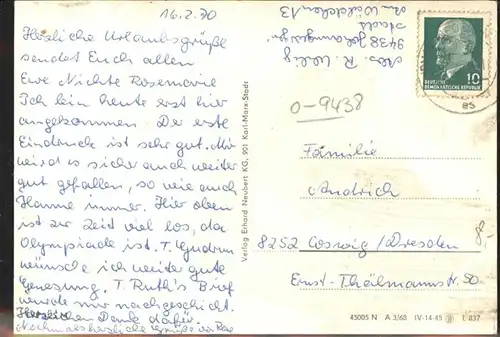 16.2.70
Herzliche Urlaubsgrüße
sendet Euch allen
Eure Nichte Rosemarie
Ich bin heute erst hier
angekommen. Der erste
Eindruck ist sehr gut. Mir
wird es sicher auch weiter
gut gefallen, so wie auch
Hanne immer. Hier oben
ist zur Zeit viel los, da
Olympiade ist. T. Gudrun
wünsche ich weiter gute
Genesung. T. Ruth's Brief
wurde mir nachgeschickt.
Herzlichen Dank dafür.
Nochmals herzliche Grüße von Rose
Verlag Erhard Neubert KG, 901 Karl-Marx-Stadt
Abs. R.
9438 Johanngeorgen-
stadt
Am Wäldchen 13
10
DEUTSCHE
DEMOKRATISCHE REPUBLIK
0-9438
Familie
Andrich
8252 Coswig/Dresden
Ernst-Thälmannstr. 50
8,-
45005 N A 3/68 IV-14-45 L 837